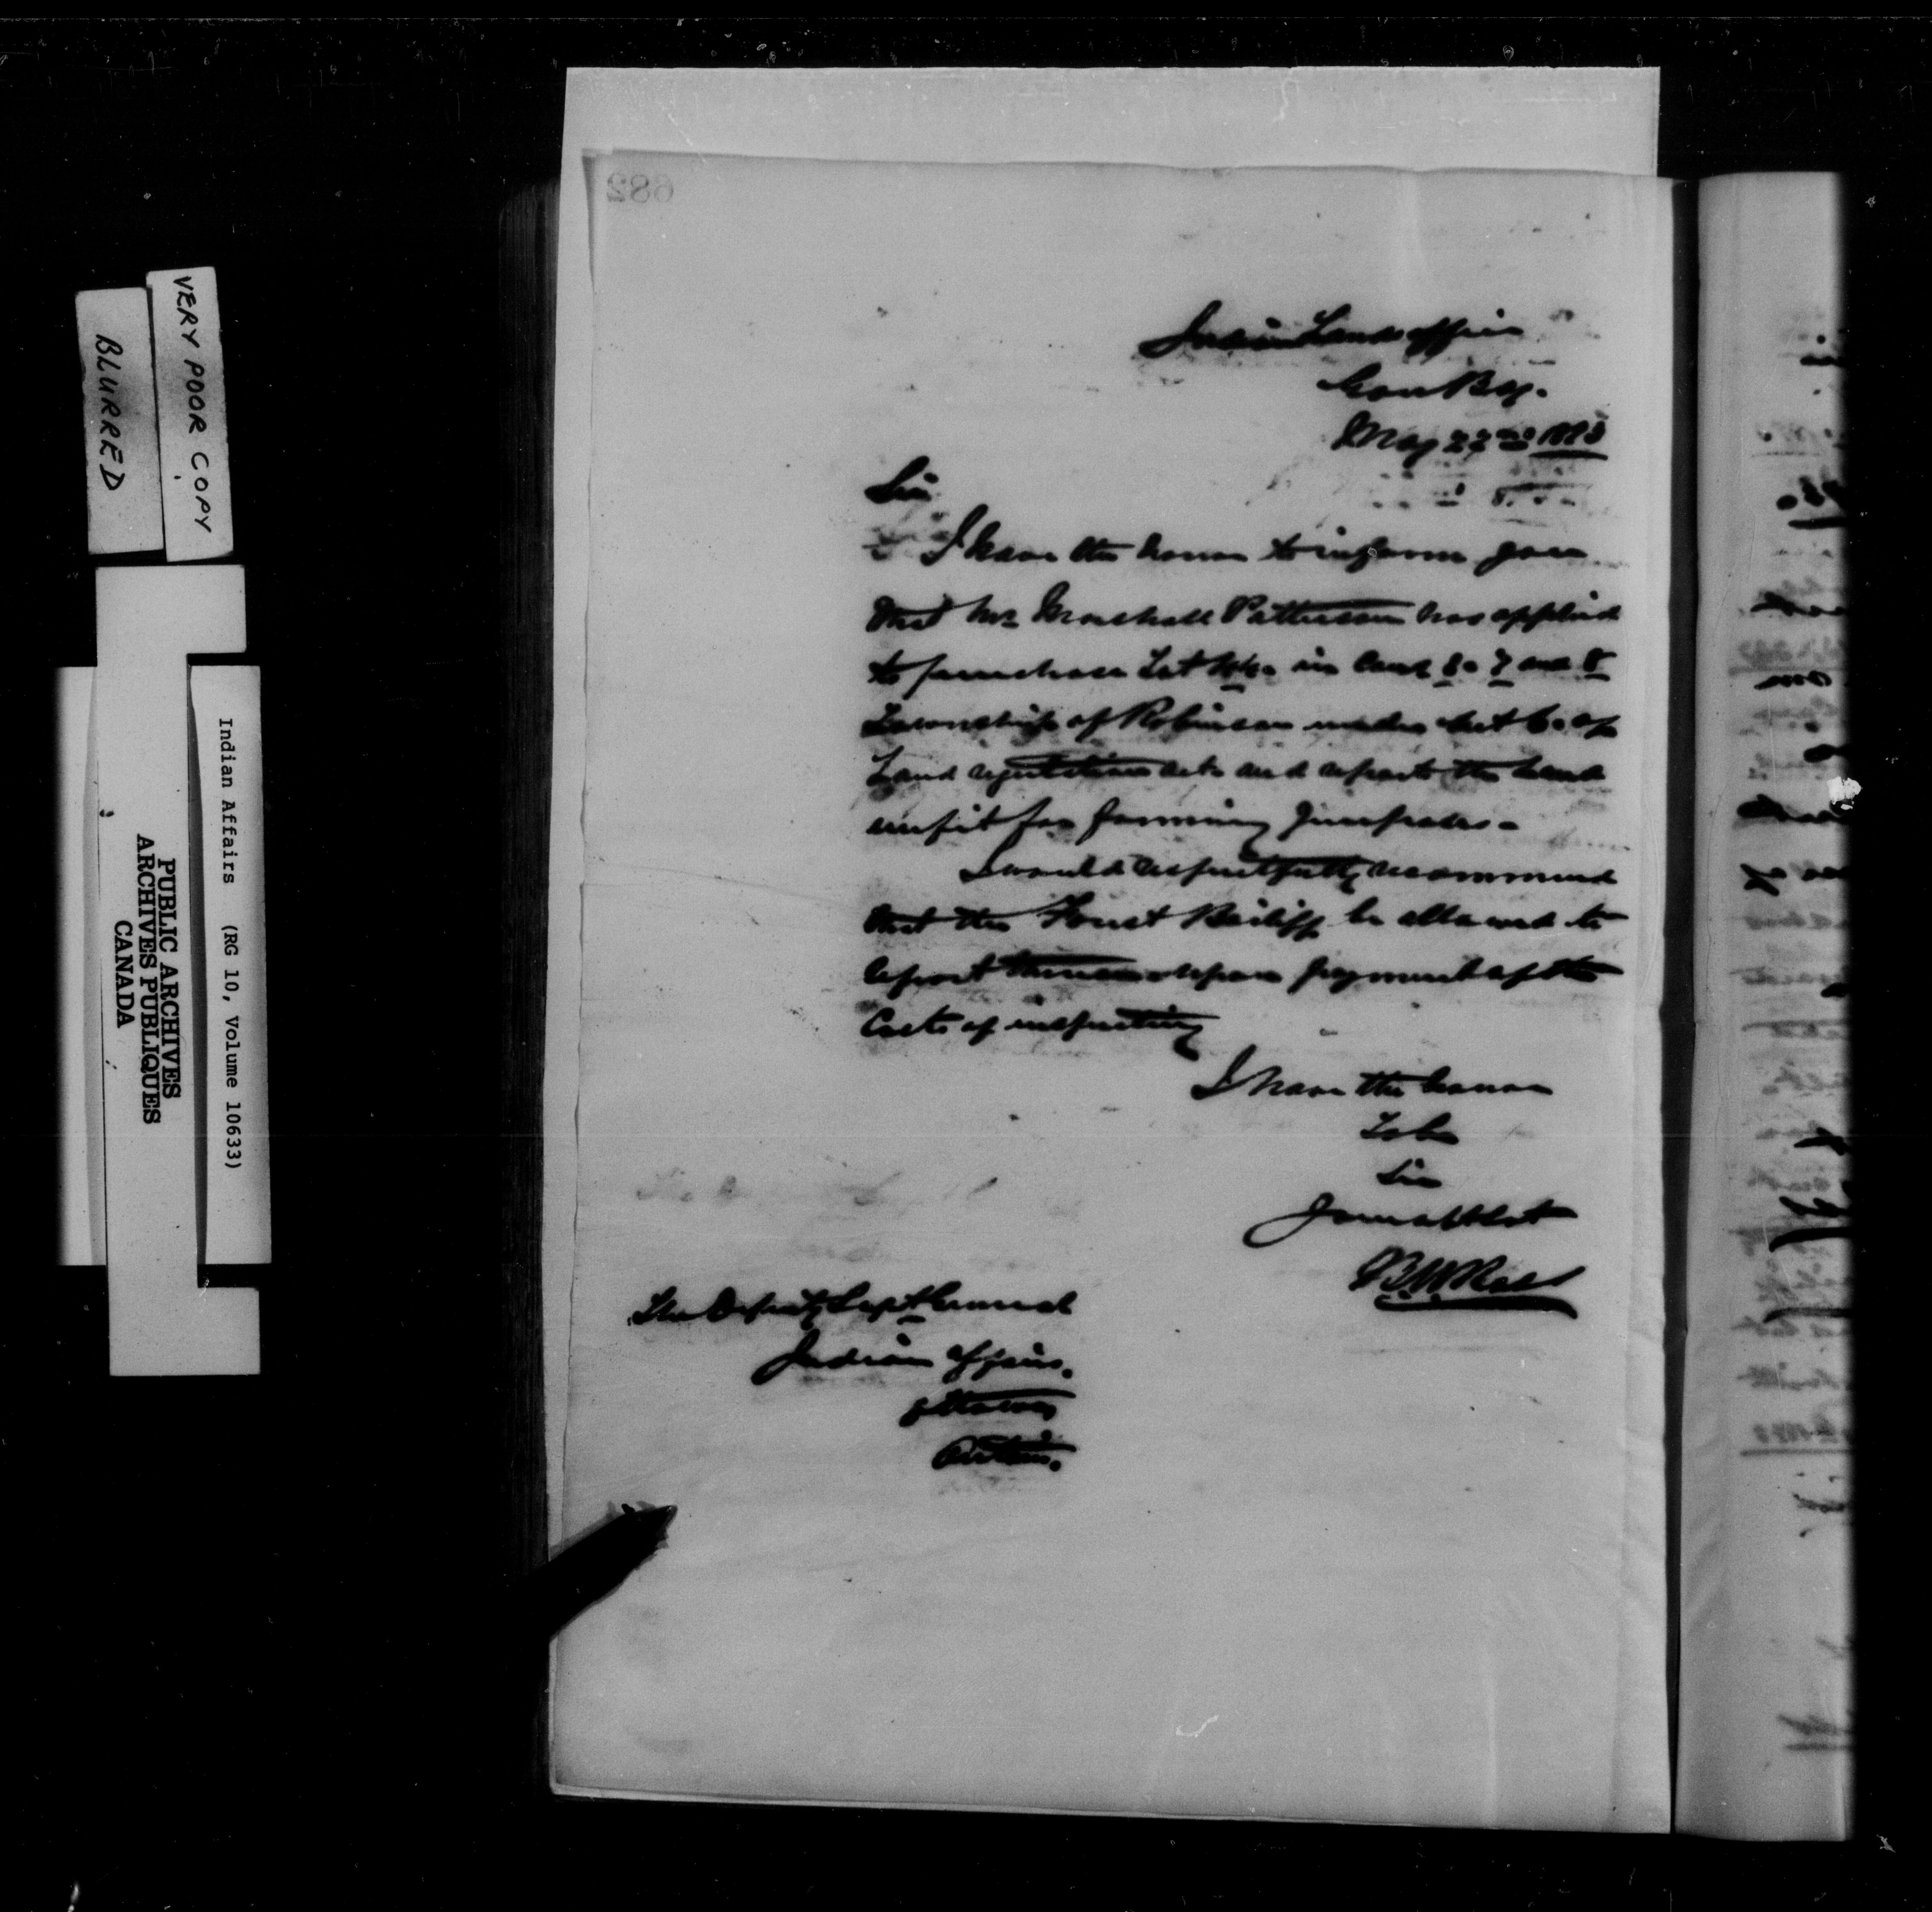 682
Indian Lands Office
Gore Bay.
May 22nd 1885
Sir
I have the honor to inform you
that Mr Marshall Patterson has applied
to purchase Lot in Con 7 and 8
Township of Robinson under Sect 6 of
Land regulations and reports the land
unfit for farming purposes.
I would respectfully recommend
that the Forest Bailiff be allowed to
report thereon upon payment of the
Costs of inspecting
I have the honor
To be
Sir
Your obt Sert
B. W. Ross
The Deputy Supt General
Indian Affairs.
Ottawa
Ontario.
VERY POOR COPY
BLURRED
Indian Affairs (RG 10, Volume 10633)
PUBLIC ARCHIVES
ARCHIVES PUBLIQUES
CANADA